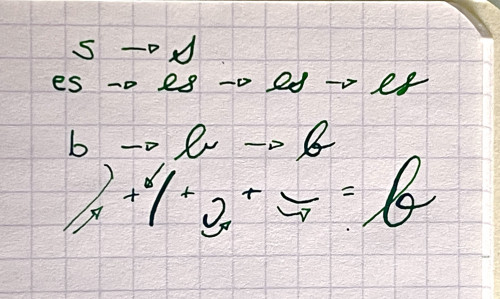 s → s
es → es → es → es
b → b → b
+ + + = b